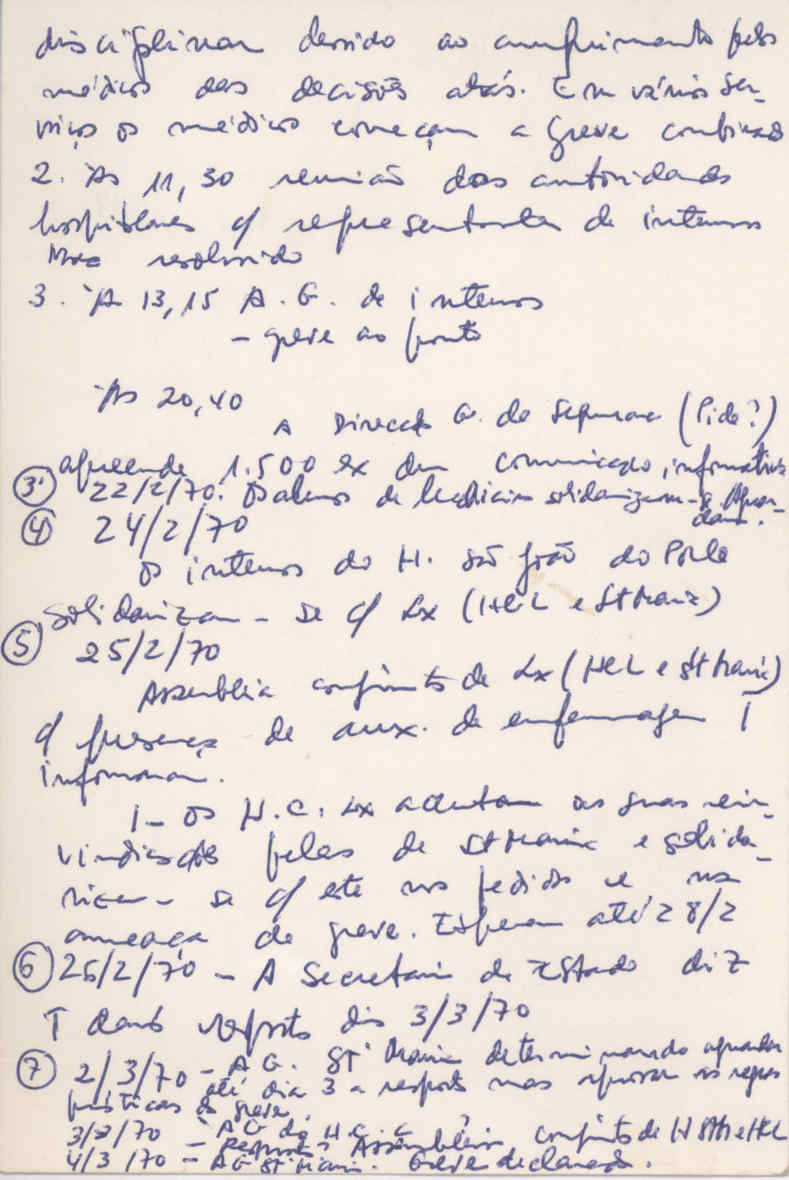 disciplinar devido ao cumprimento pelos
médicos das decisões atrás. Em vários ser-
viços os médicos começam a greve combinada
2. Às 11,30 reunião das autoridades
hospitalares c/ representantes de internos
resolvido
3. Às 13,15 A.G. de internos
- greve ao ponto
Às 20,40
A Direcção G. de Segurança (Pide?)
apreende 1.500 ex dum comunicado informativo
3' 22/2/70. Os alunos de Medicina solidarizam-se
4 24/2/70
Os internos do H. São João do Porto
solidarizam-se c/ Lx (HCL e St Maria)
5 25/2/70
Assembleia conjunta de Lx (HCL e St Maria)
c/ presença de aux. de enfermagem
informaram.
1- Os H.C. Lx adiantam as suas rei-
vindicações pelas de St Maria e solida-
rizam-se c/ este nos pedidos e na
ameaça de greve. Esperam até 28/2
6 25/2/70 - A Secretaria de Estado diz
dará resposta dia 3/3/70
7 2/3/70 - A G. St Maria determinando aguardar
até dia 3 a resposta mas
práticas da greve.
3/3/70 - A G do H.C.L. Assembleia conjunta de H St M e HCL
4/3/70 - A G St Maria. Greve declarada.